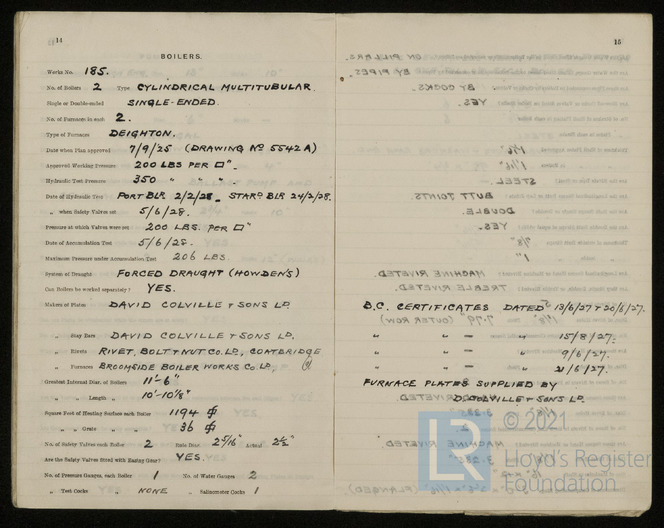 14
BOILERS.
Works No. 185.
No. of Boilers 2 Type CYLINDRICAL MULTITUBULAR
Single or Double-ended SINGLE-ENDED.
No. of Furnaces in each 2.
Type of Furnaces DEIGHTON.
Date when Plan approved 7/9/25 (DRAWING No 5542A)
Approved Working Pressure 200 LBS PER □".
Hydraulic Test Pressure 350 " " " .
Date of Hydraulic Test PORT BLR 2/2/28. STARD BLR 24/2/28.
" when Safety Valves set 5/6/28.
Pressure at which Valves were set 200 LBS. PER □"
Date of Accumulation Test 5/6/28.
Maximum Pressure under Accumulation Test 206 LBS.
System of Draught FORCED DRAUGHT (HOWDEN'S)
Can Boilers be worked separately? YES.
Makers of Plates DAVID COLVILLE & SONS LD.
" Stay Bars DAVID COLVILLE & SONS LD.
" Rivets RIVET, BOLT & NUT CO. LD., COATBRIDGE
" Furnaces BROOMSIDE BOILER WORKS CO. LD.,
Greatest Internal Diam. of Boilers 11'-6"
" " Length " 10'-10⅛"
Square Feet of Heating Surface each Boiler 1194
" " Grate " 36
No. of Safety Valves each Boiler 2 Rule Diam. 2 5/16" Actual 2½"
Are the Safety Valves fitted with Easing Gear? YES.
No. of Pressure Gauges, each Boiler 1 No. of Water Gauges 2
" Test Cocks " NONE " Salinometer Cocks 1
15
B.C. CERTIFICATES DATED 13/6/27 & 20/5/27.
" " " 15/8/27.
" " " 9/6/27.
" " " 21/6/27.
FURNACE PLATES SUPPLIED BY
D. COLVILLE & SONS LD.
LR
© 2021
Lloyd's Register
Foundation